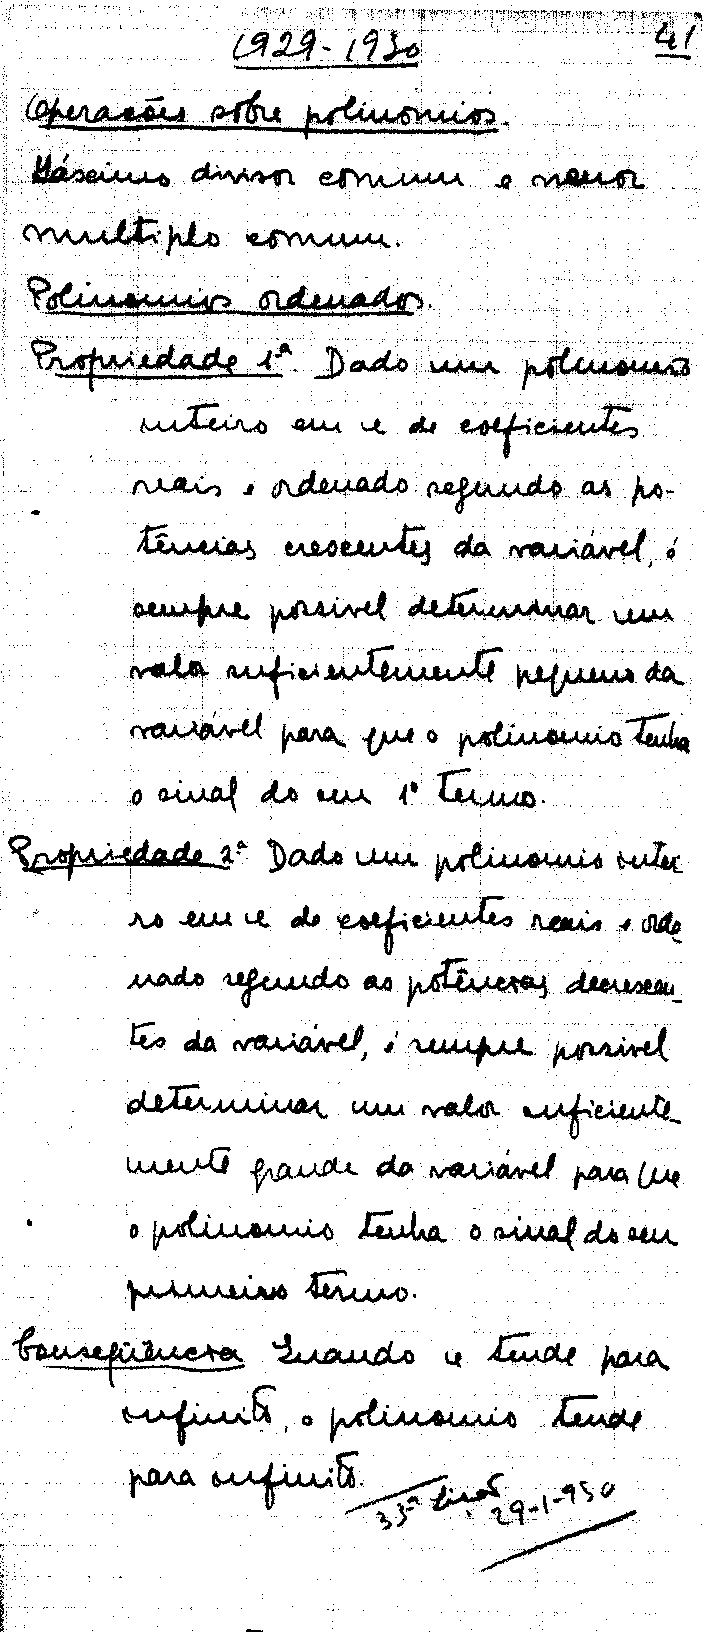 1929-1930
41
Operações sobre polinomios.
Máximo divisor comum e menor
multiplo comum.
Polinomios ordenados.
Propriedade 1ª. Dado um polinomio
inteiro em x e de coeficientes
reais e ordenado segundo as po-
tências crescentes da variável, é
sempre possivel determinar um
valor suficientemente pequeno da
variável para que o polinomio tenha
o sinal do seu 1º termo.
Propriedade 2ª Dado um polinomio intei
ro em x e de coeficientes reais e orde
nado segundo as potências decrescen-
tes da variável, é sempre possivel
determinar um valor suficiente-
mente grande da variável para que
o polinomio tenha o sinal do seu
primeiro termo.
Conseqüência Quando x tende para
infinito, o polinomio tende
para infinito.
33ª Lição
29-1-930